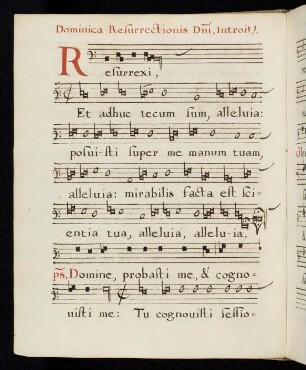 Dominica Resurrectionis Dñi, Introit9.
Resurrexi,
Et adhuc tecum sum, alleluia:
posui-sti super me manum tuam,
alleluia: mirabilis facta est sci-
entia tua, alleluia, allelu-ia,
ps, Domine, probasti me, & cogno-
uisti me: Tu cognouisti sessio-